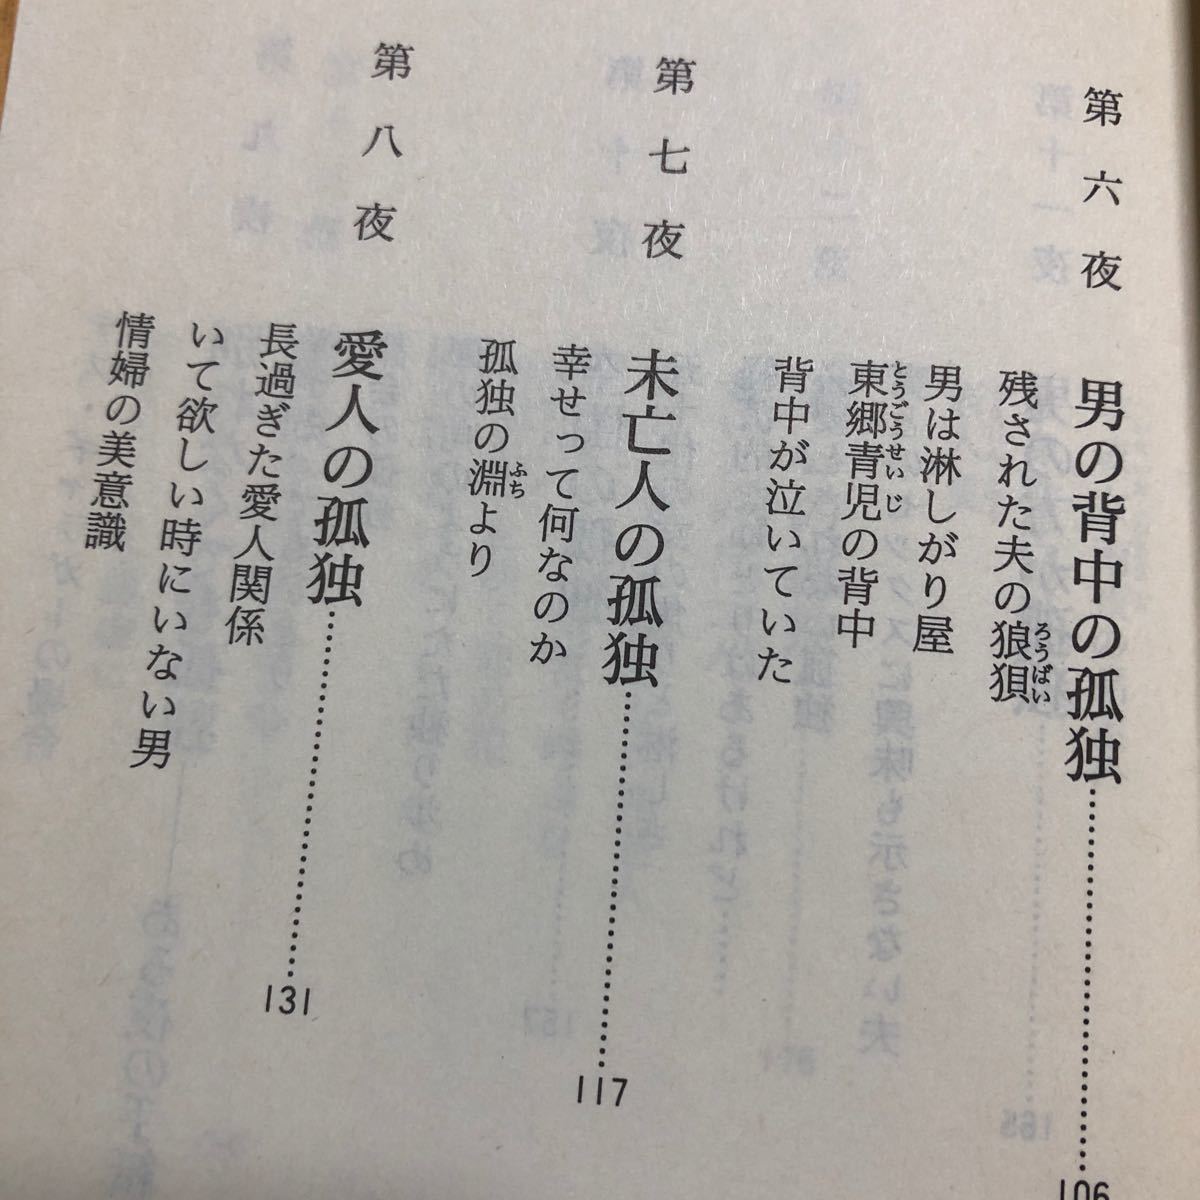 第六夜 男の背中の孤独……106
残された夫の狼狽
男は淋しがり屋
東郷青児の背中
背中が泣いていた
第七夜 未亡人の孤独……117
幸せって何なのか
孤独の淵より
第八夜 愛人の孤独……131
長過ぎた愛人関係
いて欲しい時にいない男
情婦の美意識